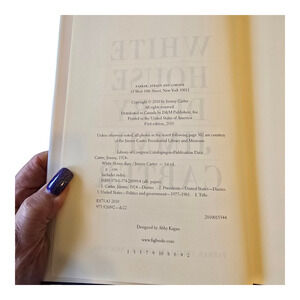 FARRAR, STRAUS AND GIROUX
18 West 18th Street, New York 10011
Copyright © 2010 by Jimmy Carter
All rights reserved
Distributed in Canada by D&M Publishers, Inc.
Printed in the United States of America
First edition, 2010
Unless otherwise noted, all photos in the insert following page 302 are courtesy
of the Jimmy Carter Presidential Library and Museum.
Library of Congress Cataloging-in-Publication Data
Carter, Jimmy, 1924–
White House diary / Jimmy Carter. — 1st ed.
p. cm.
Includes index.
1. Carter, Jimmy, 1924– —Diaries. 2. Presidents—United States—Diaries.
3. United States—Politics and government—1977–1981. I. Title.
E873.A3 2010
973.926092—dc22
2010015544
Designed by Abby Kagan
www.fsgbooks.com
1 3 5 7 9 10 8 6 4 2
WHITE
HOUSE